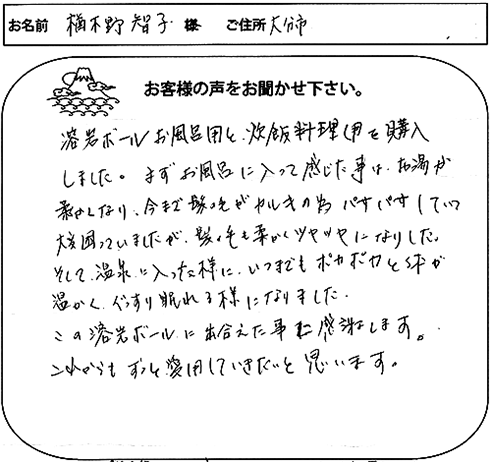 お名前 楢木野智子 様 ご住所 大分市
お客様の声をお聞かせ下さい。
溶岩ボールお風呂用と、炊飯料理用を購入
しました。まずお風呂に入って感じた事は、お湯が
柔かくなり、今まで髪の毛がカルキの為パサパサしていて
大変困っていましたが、髪の毛も柔かくツヤツヤになりました。
そして、温泉に入った様に、いつまでもポカポカと体が
温かく、ぐっすり眠れる様になりました。
この溶岩ボールに出合えた事に感謝します。
これからもずっと愛用していきたいと思います。